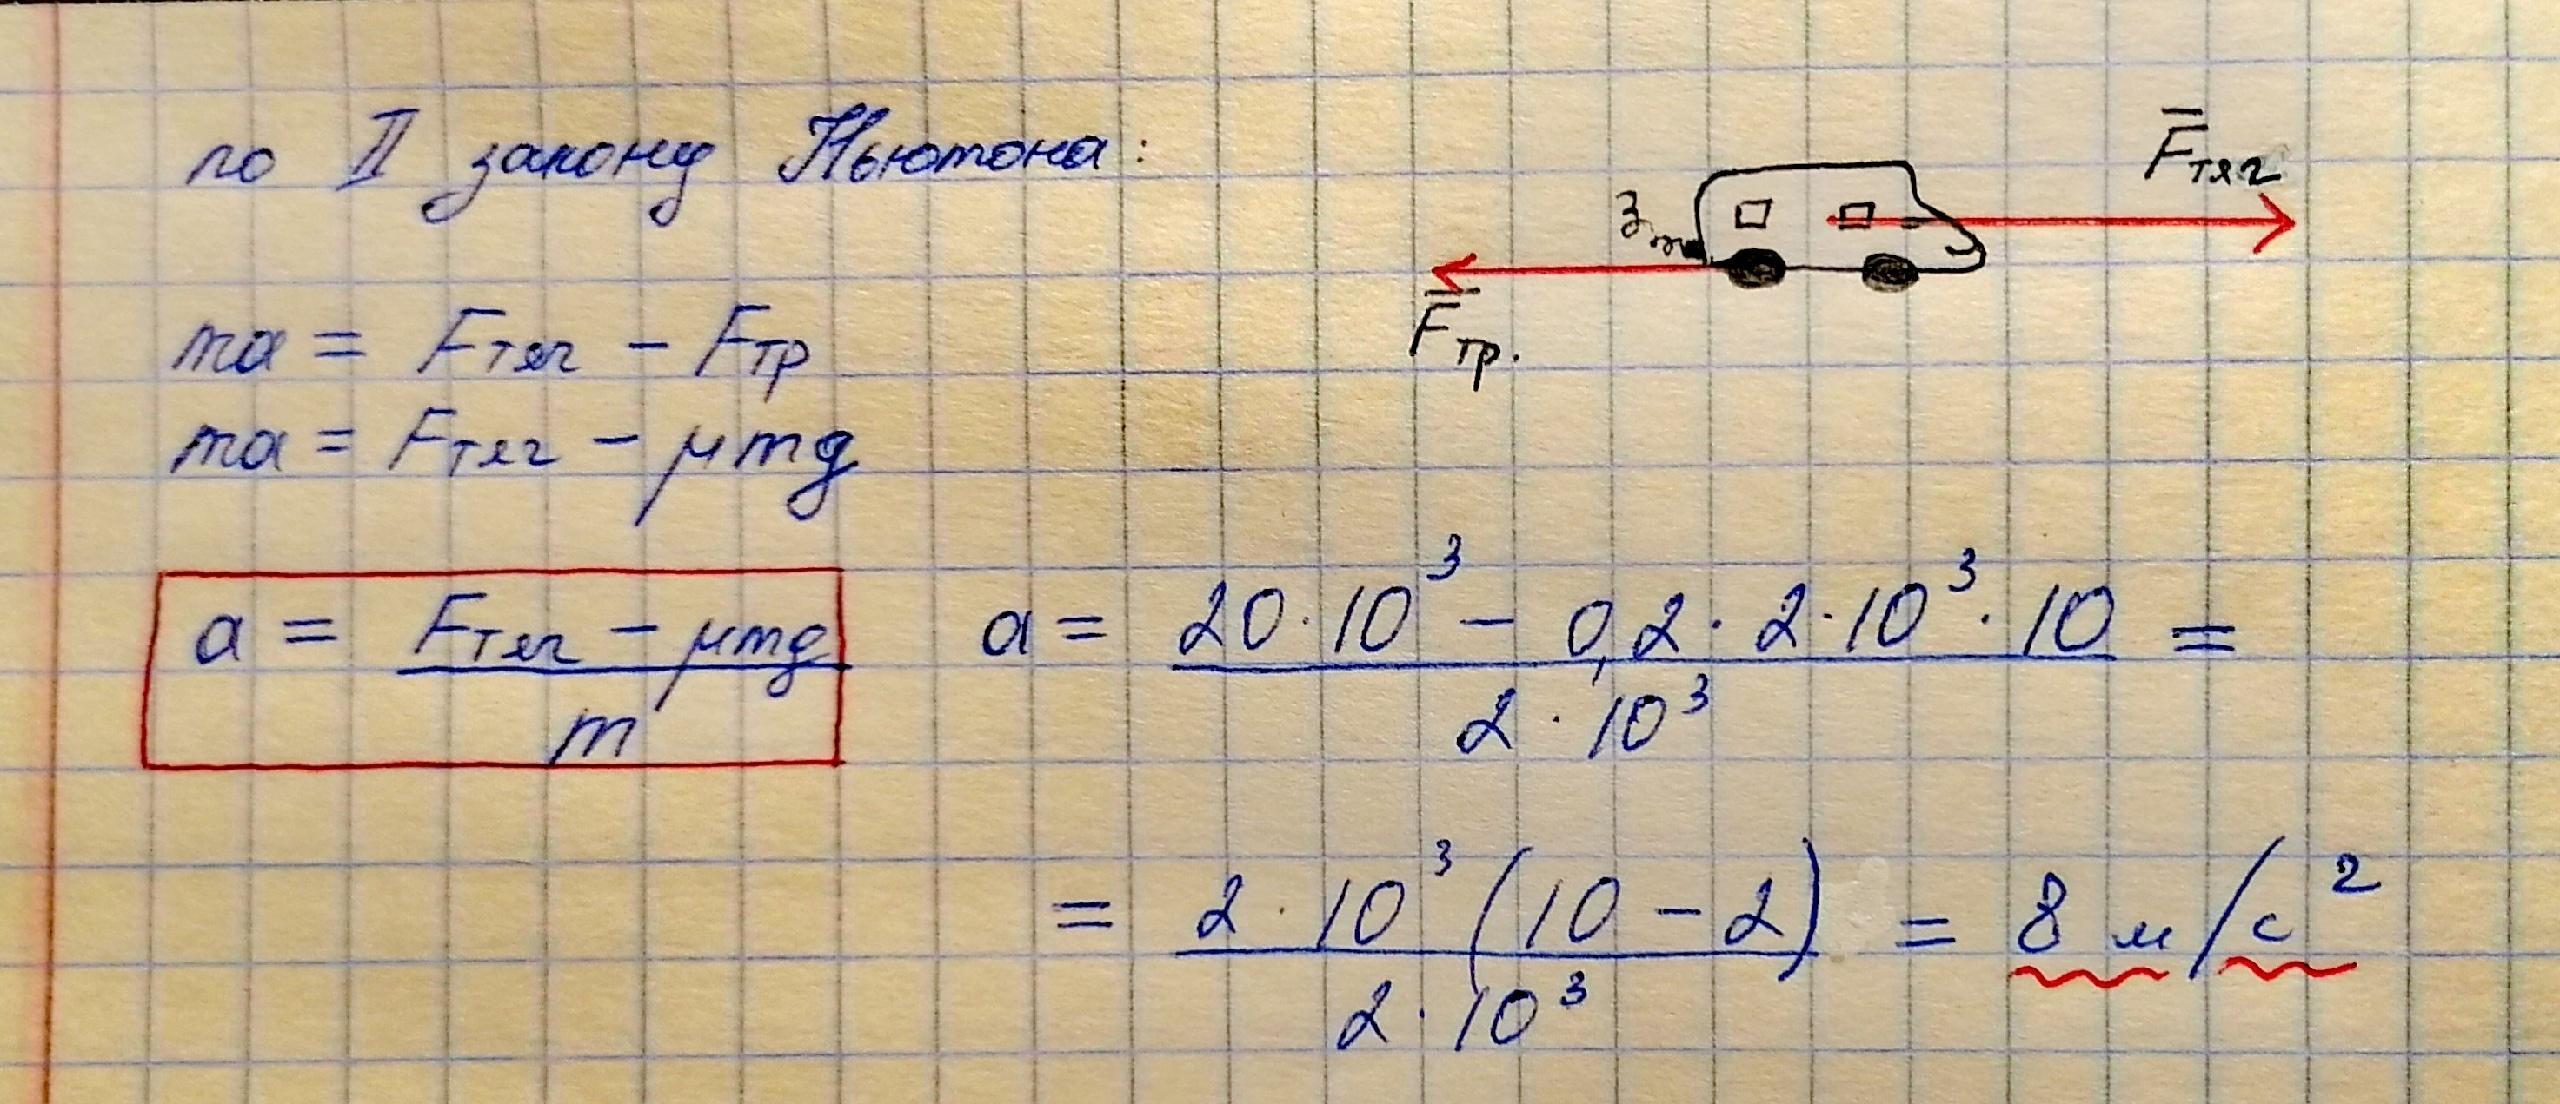 по II закону Ньютона:
F̅тяг
F̅тр.
ma = Fтяг − Fтр
ma = Fтяг − μmg
a = (Fтяг − μmg) / m
a = (20·10³ − 0,2·2·10³·10) / (2·10³) =
= (2·10³(10−2)) / (2·10³) = 8 м/с²